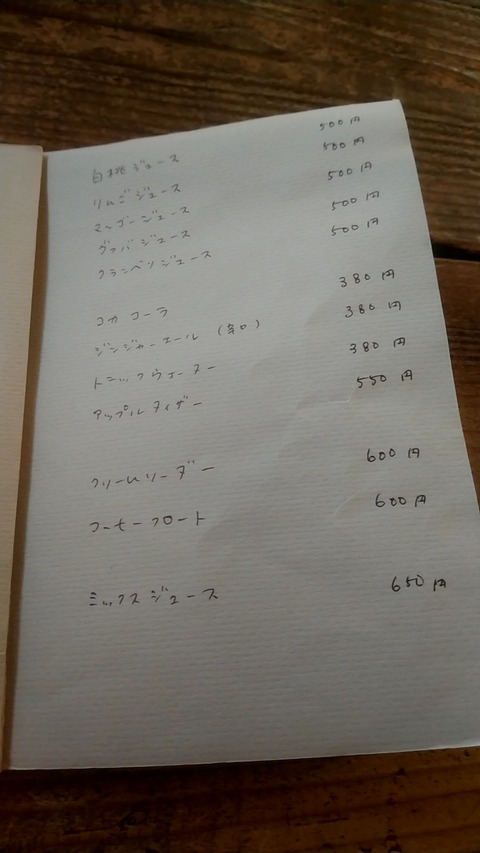 白桃ジュース 500円
りんごジュース 500円
マンゴージュース 500円
グァバジュース 500円
クランベリジュース 500円
コカコーラ 380円
ジンジャーエール (辛口) 380円
トニックウォーター 380円
アップルタイザー 550円
クリームソーダー 600円
コーヒーフロート 600円
ミックスジュース 650円